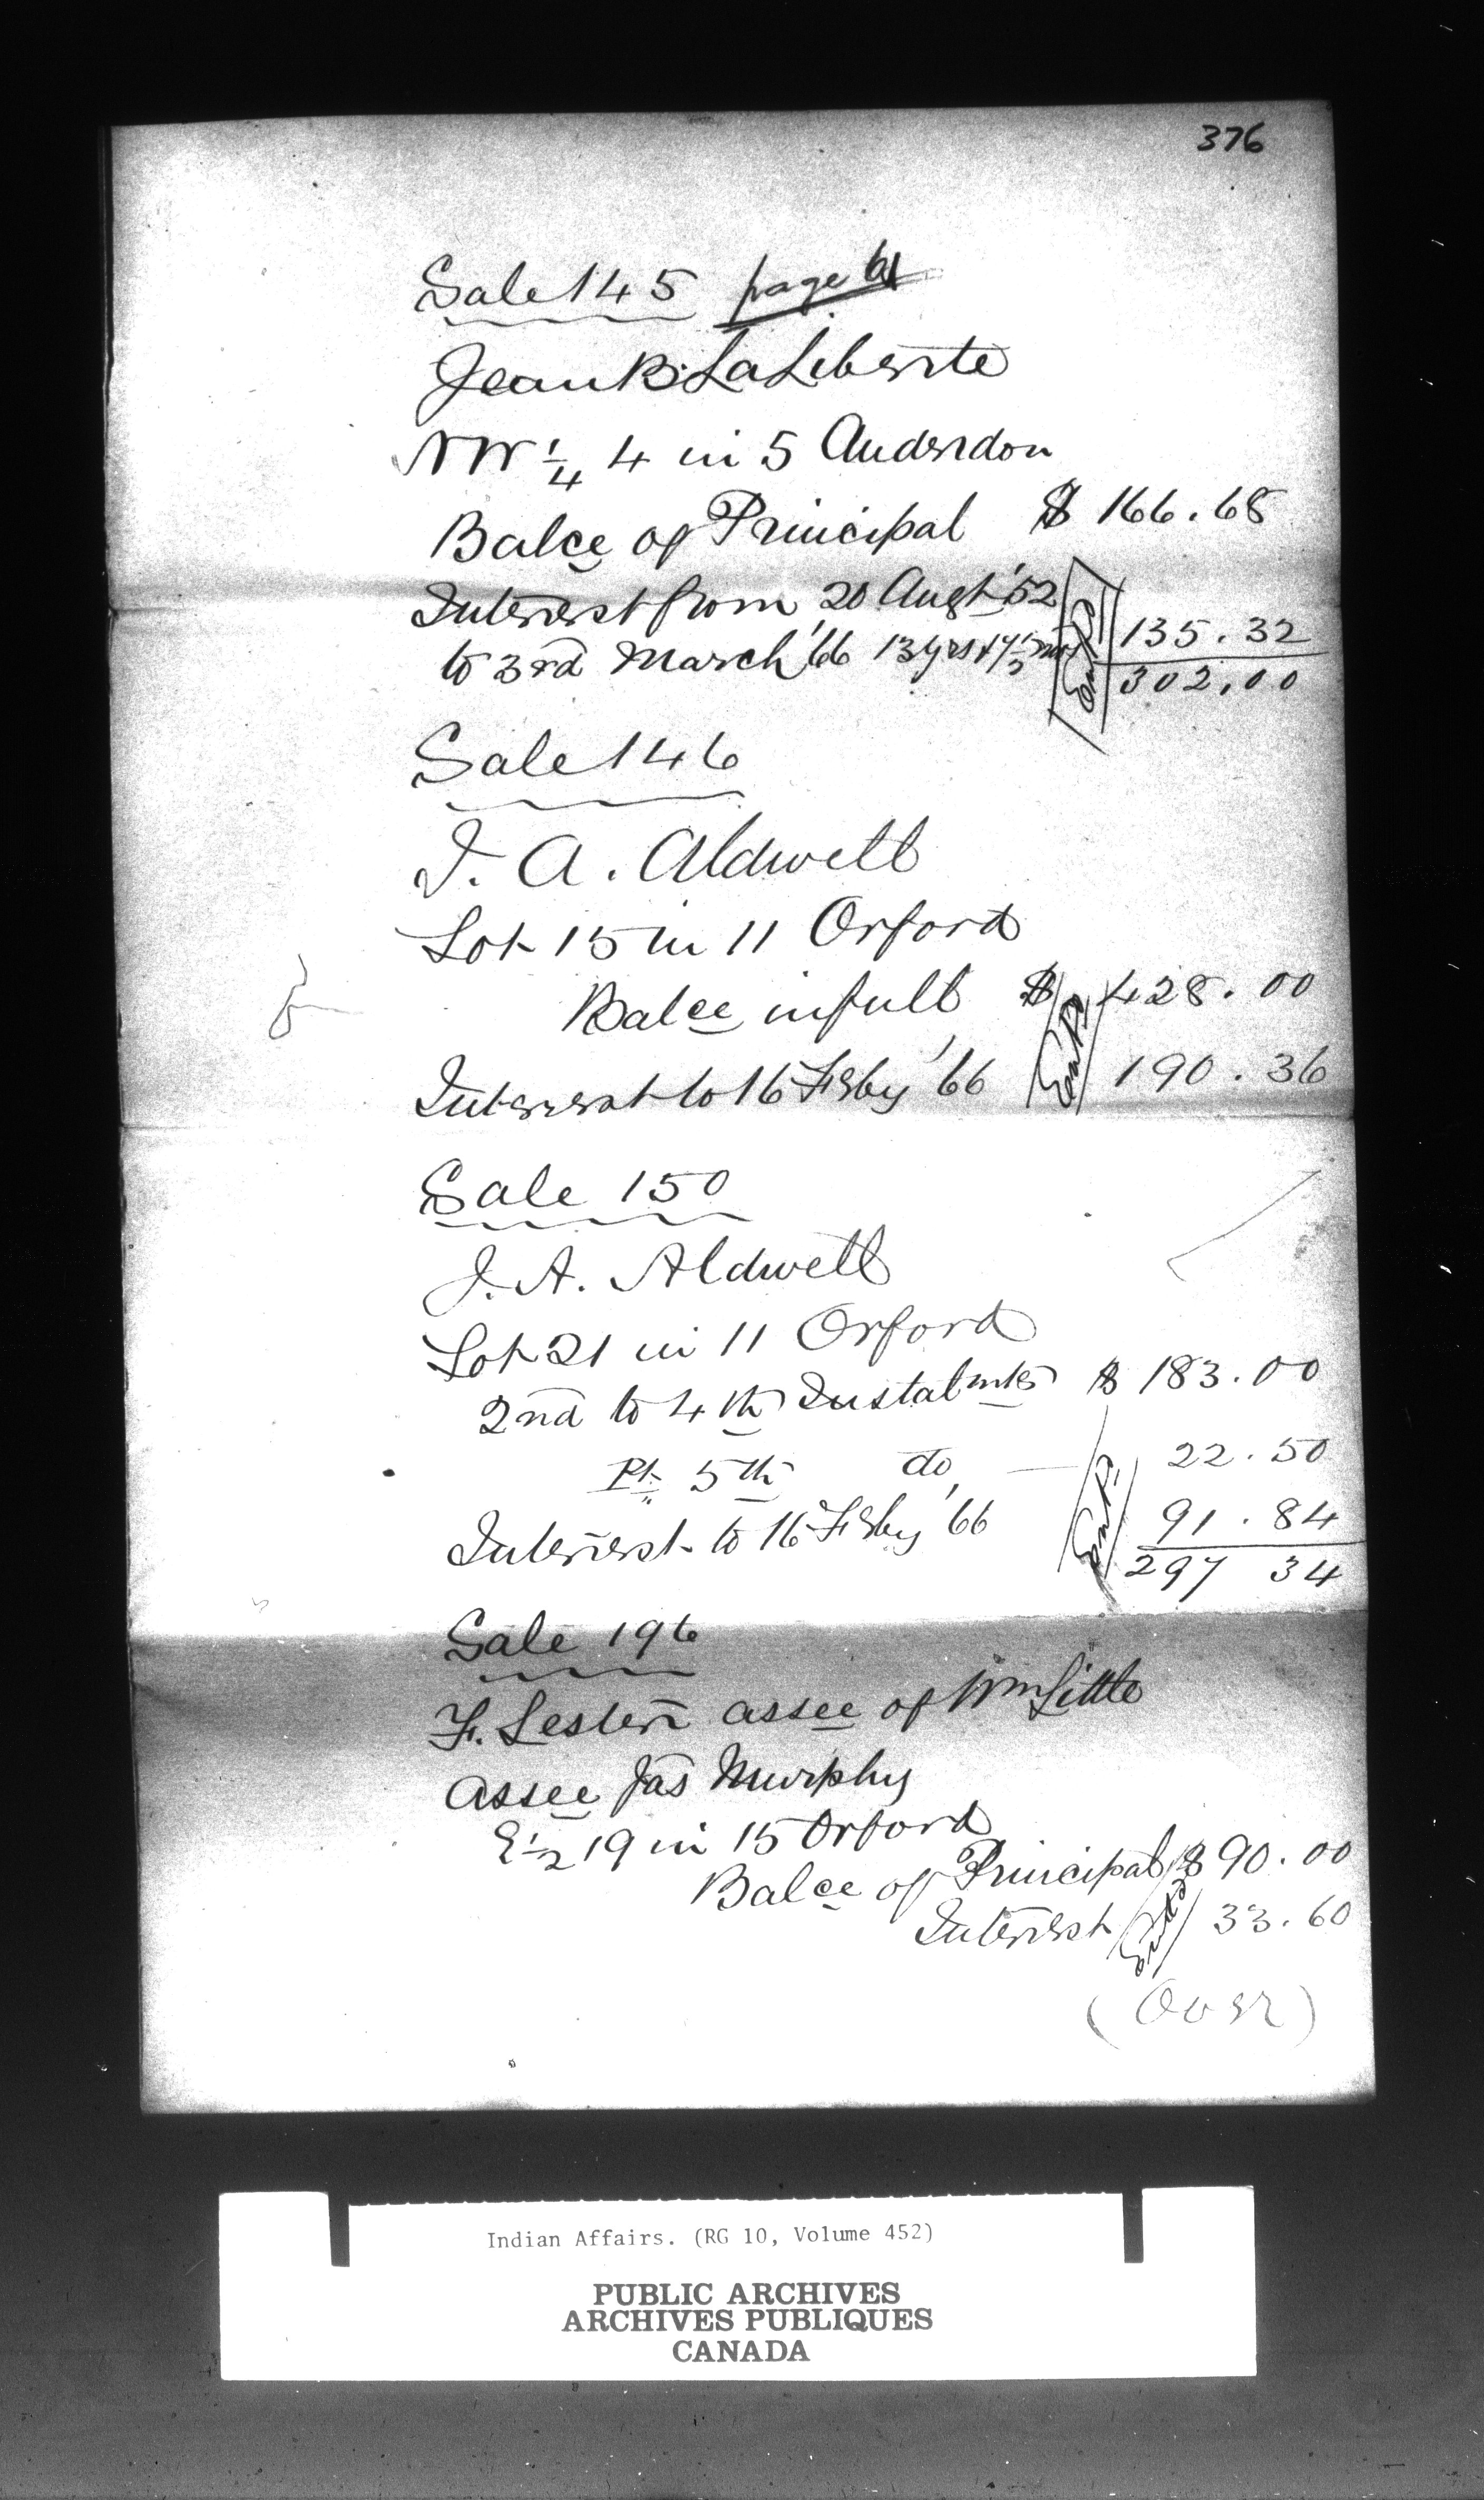 376
Sale 145 page 61
Jean B. LaLiberte
NW 1/4 4 in 5 Anderdon
Balce of Principal $ 166.68
Interest from 20 Augt '52
to 3rd March '66 13 yrs 135.32
302.00
Sale 146
J. A. Aldwell
Lot 15 in 11 Orford
Balce in full $ 428.00
Interest to 16 Feby '66 190.36
Sale 150
J. A. Aldwell
Lot 21 in 11 Orford
2nd to 4th Instalmts $ 183.00
Pt 5th do 22.50
Interest to 16 Feby '66 91.84
297 34
Sale 196
F. Lester assee of Wm Little
assee Jas Murphy
E 1/2 19 in 15 Orford
Balce of Principal $ 90.00
Interest 33.60
(Over)
Indian Affairs. (RG 10, Volume 452)
PUBLIC ARCHIVES
ARCHIVES PUBLIQUES
CANADA